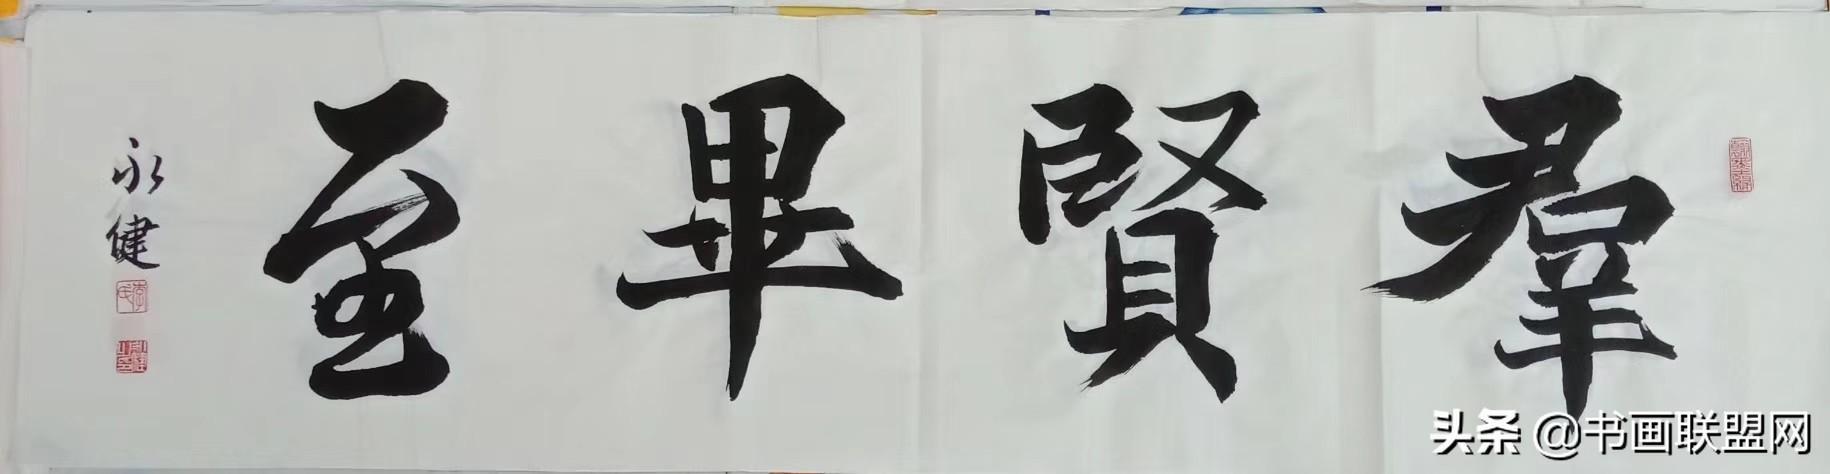 羣賢畢至
永健
头条 @书画联盟网